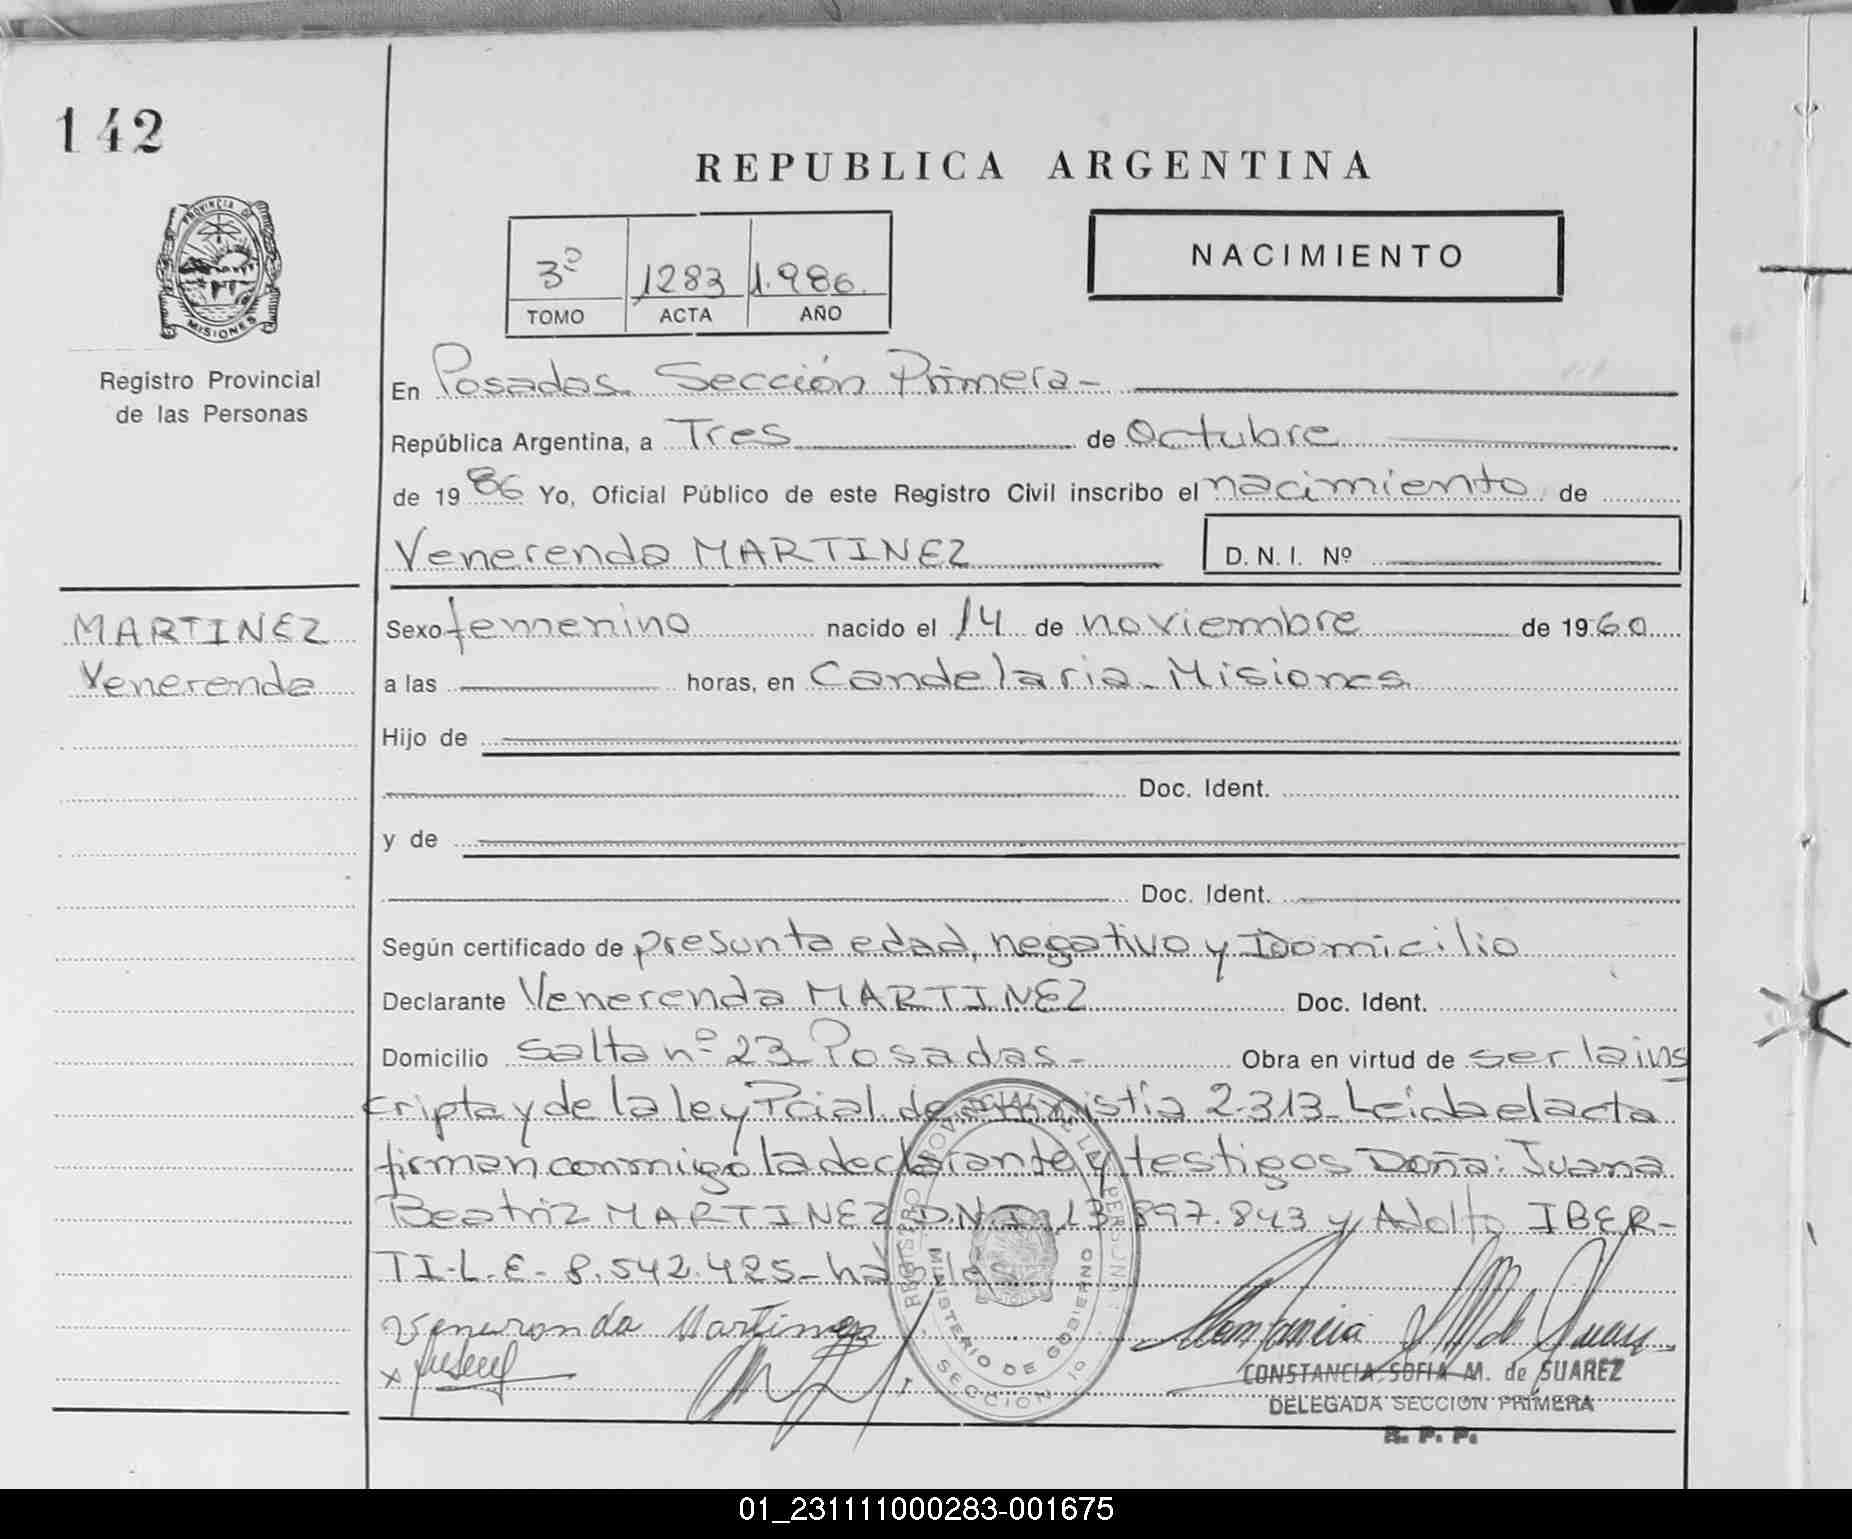 142
REPUBLICA ARGENTINA
PROVINCIA DE
MISIONES
Registro Provincial
de las Personas
3º 1283 1.986.
TOMO ACTA AÑO
NACIMIENTO
En Posadas Sección Primera-
República Argentina, a Tres de Octubre
de 1986 Yo, Oficial Público de este Registro Civil inscribo el nacimiento de
Venerenda MARTINEZ D. N. I. Nº
MARTINEZ
Venerenda
Sexo femenino nacido el 14 de noviembre de 1960
a las horas, en Candelaria-Misiones
Hijo de
Doc. Ident.
y de
Doc. Ident.
Según certificado de presunta edad, negativo y Domicilio
Declarante Venerenda MARTINEZ Doc. Ident.
Domicilio Salta nº 23 Posadas- Obra en virtud de ser la ins
cripta y de la ley Pcial. de amnistía 2.313- Leida el acta
firman conmigo la declarante y testigos Doña: Juana
Beatriz MARTINEZ D.N.I. 13.897.843 y Adolfo IBER-
TI-L.E- 8.542.425- hábiles
Veneranda Martinez
REGISTRO PROVINCIAL DE LAS PERSONAS
MINISTERIO DE GOBIERNO
SECCION 1º
Constancia S M de Suarez
CONSTANCIA SOFIA M. de SUAREZ
DELEGADA SECCION PRIMERA
R. P. P.
01_231111000283-001675